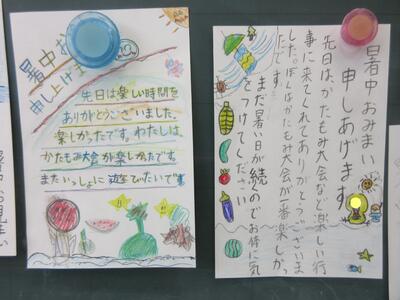 暑中お
申し上げま
先日は楽しい時間を
ありがとうございました。
楽しかったです。わたしは
かたもみ大会が楽しかったです
またいっしょに遊びたいです
暑中おみまい
申しあげます
先日は、かたもみ大会など楽しい行
事に来てくれてありがとうございま
した。ぼくはかたもみ大会が一番楽しか
ったです。
まだ暑い日が続くのでお体に気
をつけてください